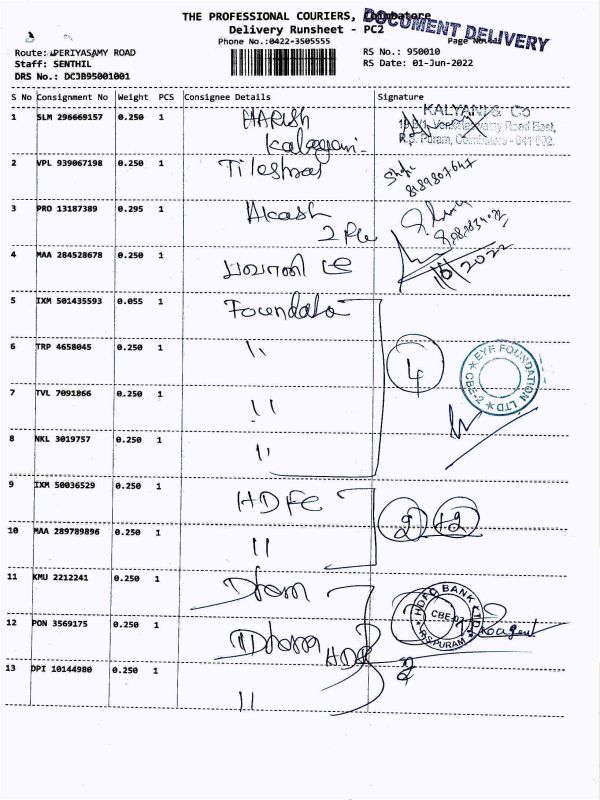 THE PROFESSIONAL COURIERS, Coimbatore
DOCUMENT DELIVERY
Delivery Runsheet - PC2
Phone No.:0422-3505555
Route: PERIYASAMY ROAD
RS No.: 950010
Staff: SENTHIL
RS Date: 01-Jun-2022
DRS No.: DCJB95001001
S No Consignment No Weight PCS Consignee Details Signature
1 SLM 296669157 0.250 1 HARISH
KALYANI & Co
R.S. Puram, Coimbatore - 641 002.
2 VPL 939067198 0.250 1
3 PRO 13187389 0.295 1 Akash
4 MAA 284528678 0.250 1 பவானி
5 IXM 501435593 0.055 1
6 TRP 4658045 0.250 1 "
4
EYE FOUNDATION LTD
CBE-2
7 TVL 7091866 0.250 1 "
8 NKL 3019757 0.250 1 "
9 IXM 50036529 0.250 1 HDFC
2 +2
10 MAA 289789896 0.250 1 "
11 KMU 2212241 0.250 1
HDFC BANK LTD.
CBE-02
R S PURAM
12 PON 3569175 0.250 1
2
13 DPI 10144980 0.250 1 "